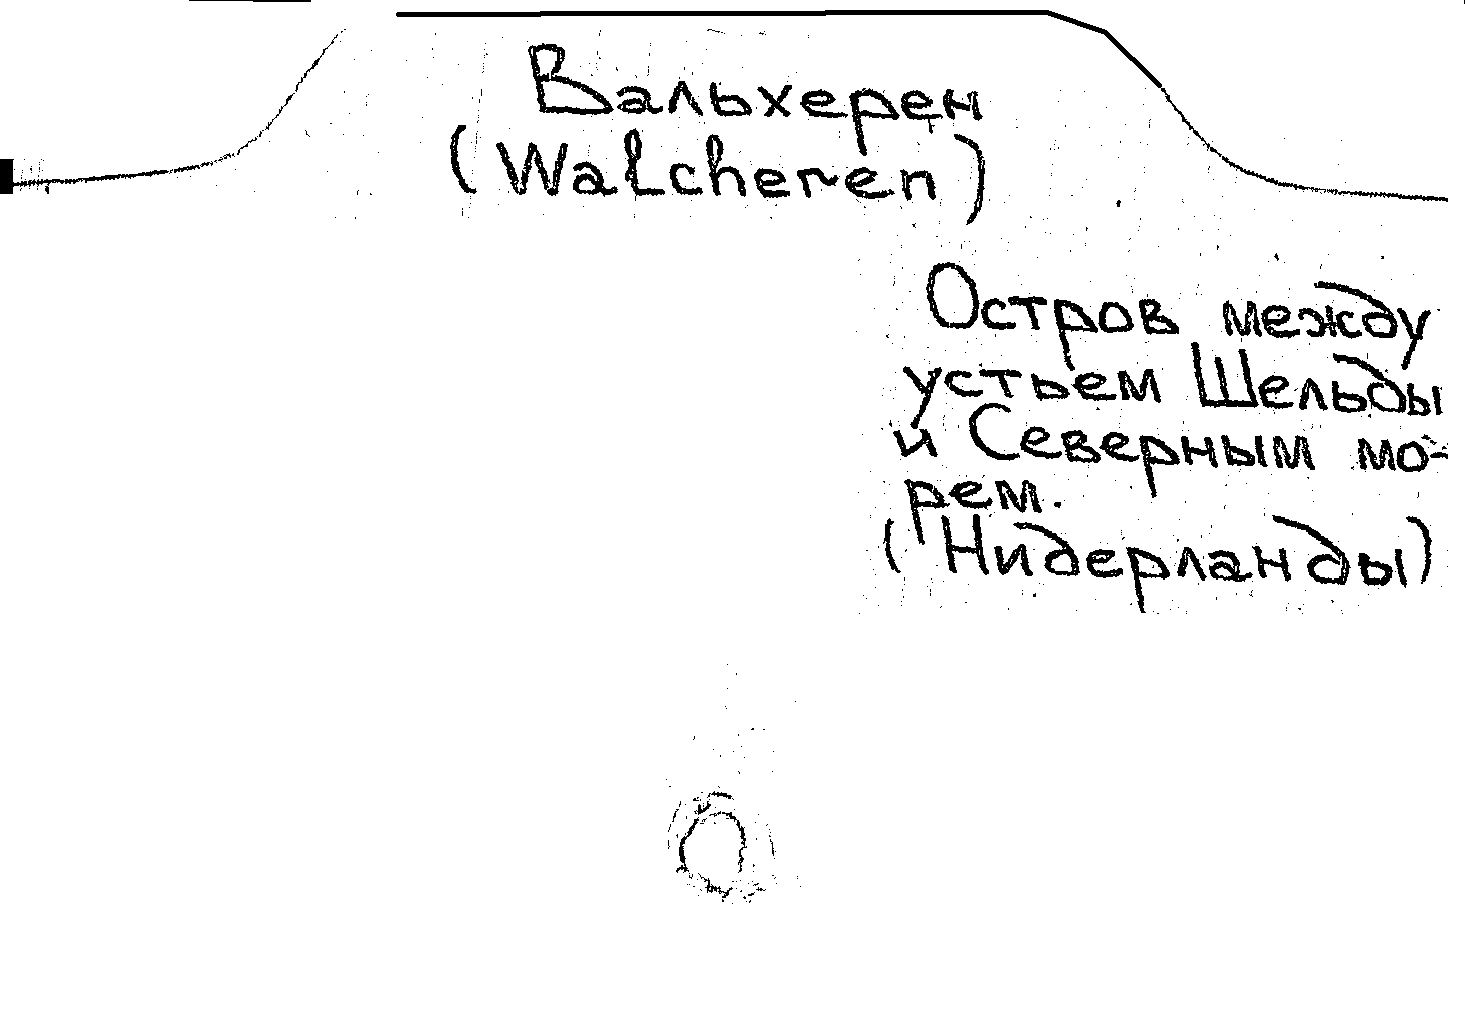 Вальхерен
(Walcheren)
Остров между
устьем Шельды
и Северным мо-
рем.
(Нидерланды)